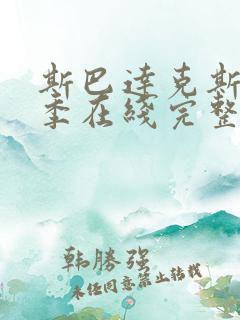 斯巴达克斯
季在线完整
韩胜强
未经同意禁止转载